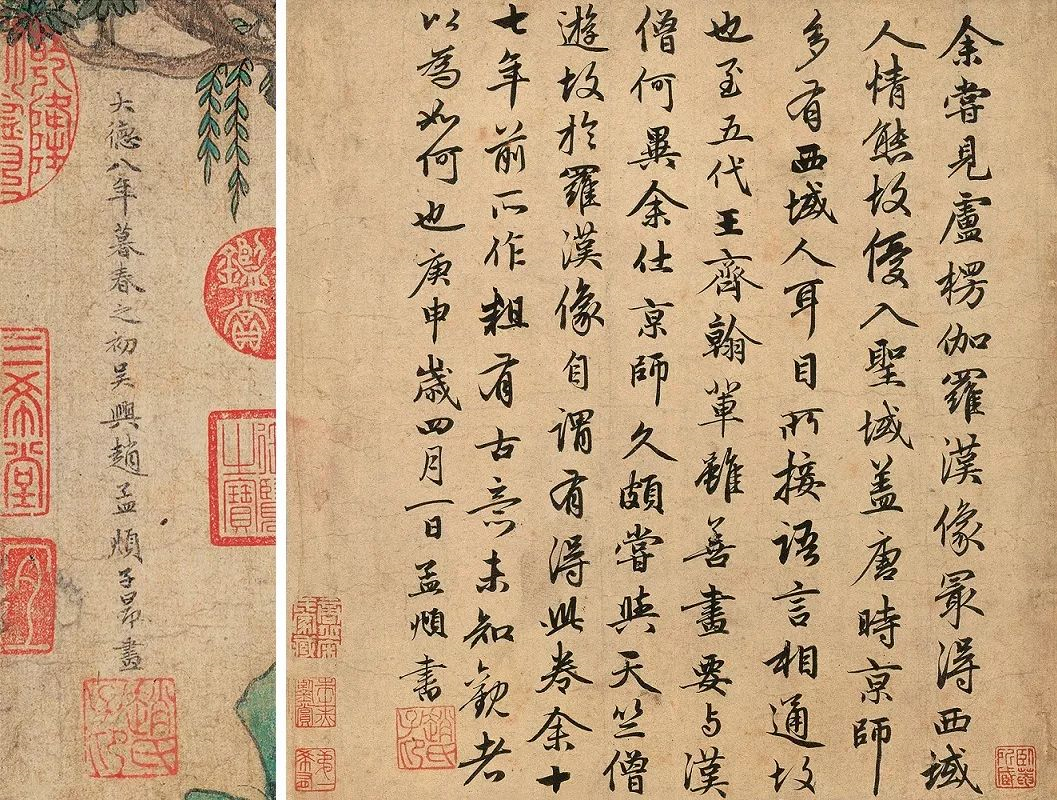 余嘗見盧楞伽羅漢像冣得西域
人情態故優入聖域盖唐時京師
多有西域人耳目所接語言相通故
也至五代王齊翰輩雖善畫要与漢
僧何異余仕京師久頗嘗與天竺僧
遊故於羅漢像自謂有得此卷余十
七年前所作粗有古意未知觀者
以為如何也庚申歲四月一日孟頫書
趙氏子昂
卧菴所藏
大德八年暮春之初吳興趙孟頫子昂畫
趙氏子昂
鑑賞
之寶
三希堂